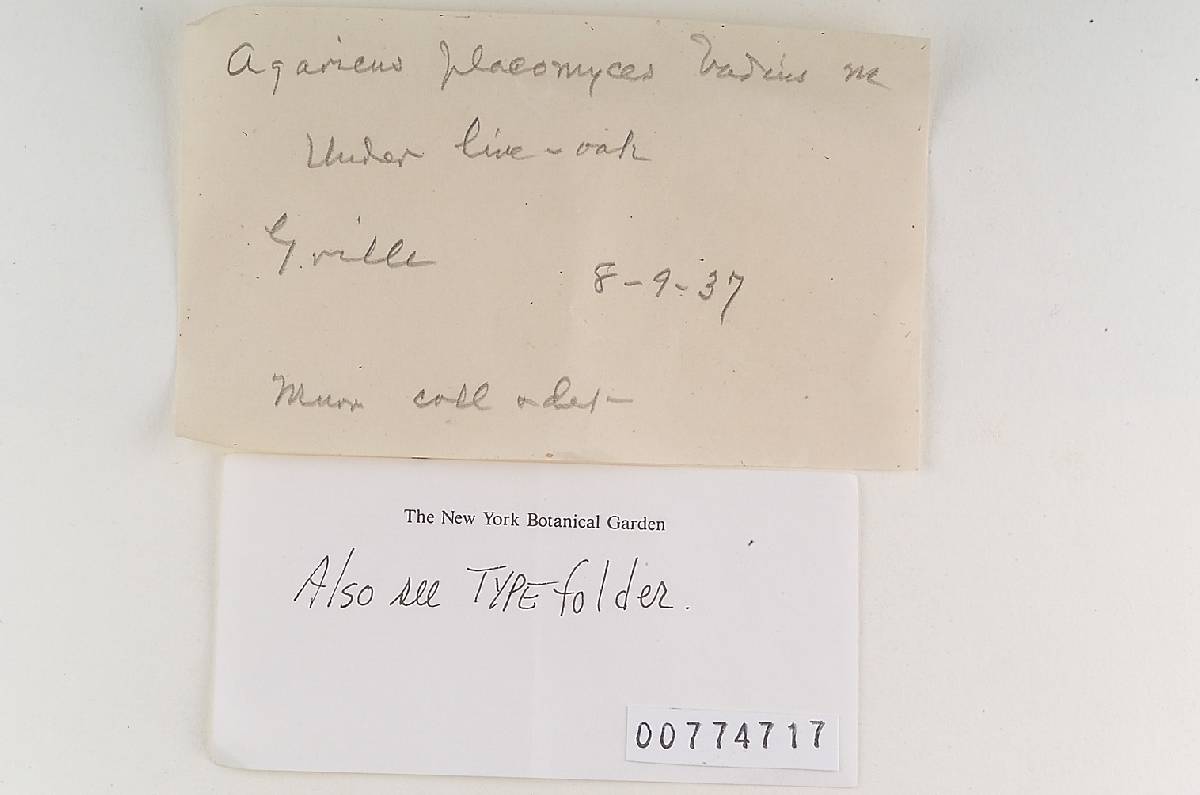 Agaricus placomyces badius
Under live-oak
G.ville
8-9-37
Murr coll & det-
The New York Botanical Garden
Also see TYPE folder.
00774717